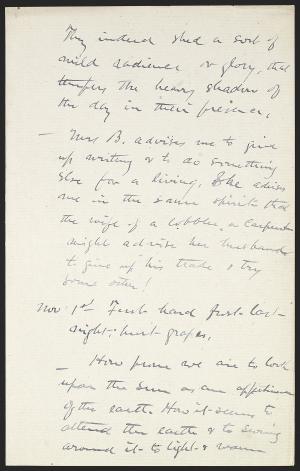 They indeed shed a sort of
mild radience or glory, that
tempers the heavy shadow of
the day in their presence.
— Mrs B. advises me to give
up writing & to do something
else for a living. She advises
me in the same spirit that
the wife of a cobbler or carpenter
might advise her husband
to give up his trade & try
some other!
Nov. 1st First hard frost last
night; hurt grapes.
— How prone we are to look
upon the sun as an appendage
of the earth. How it seems to
attend the earth & to swing
around it to light & warm